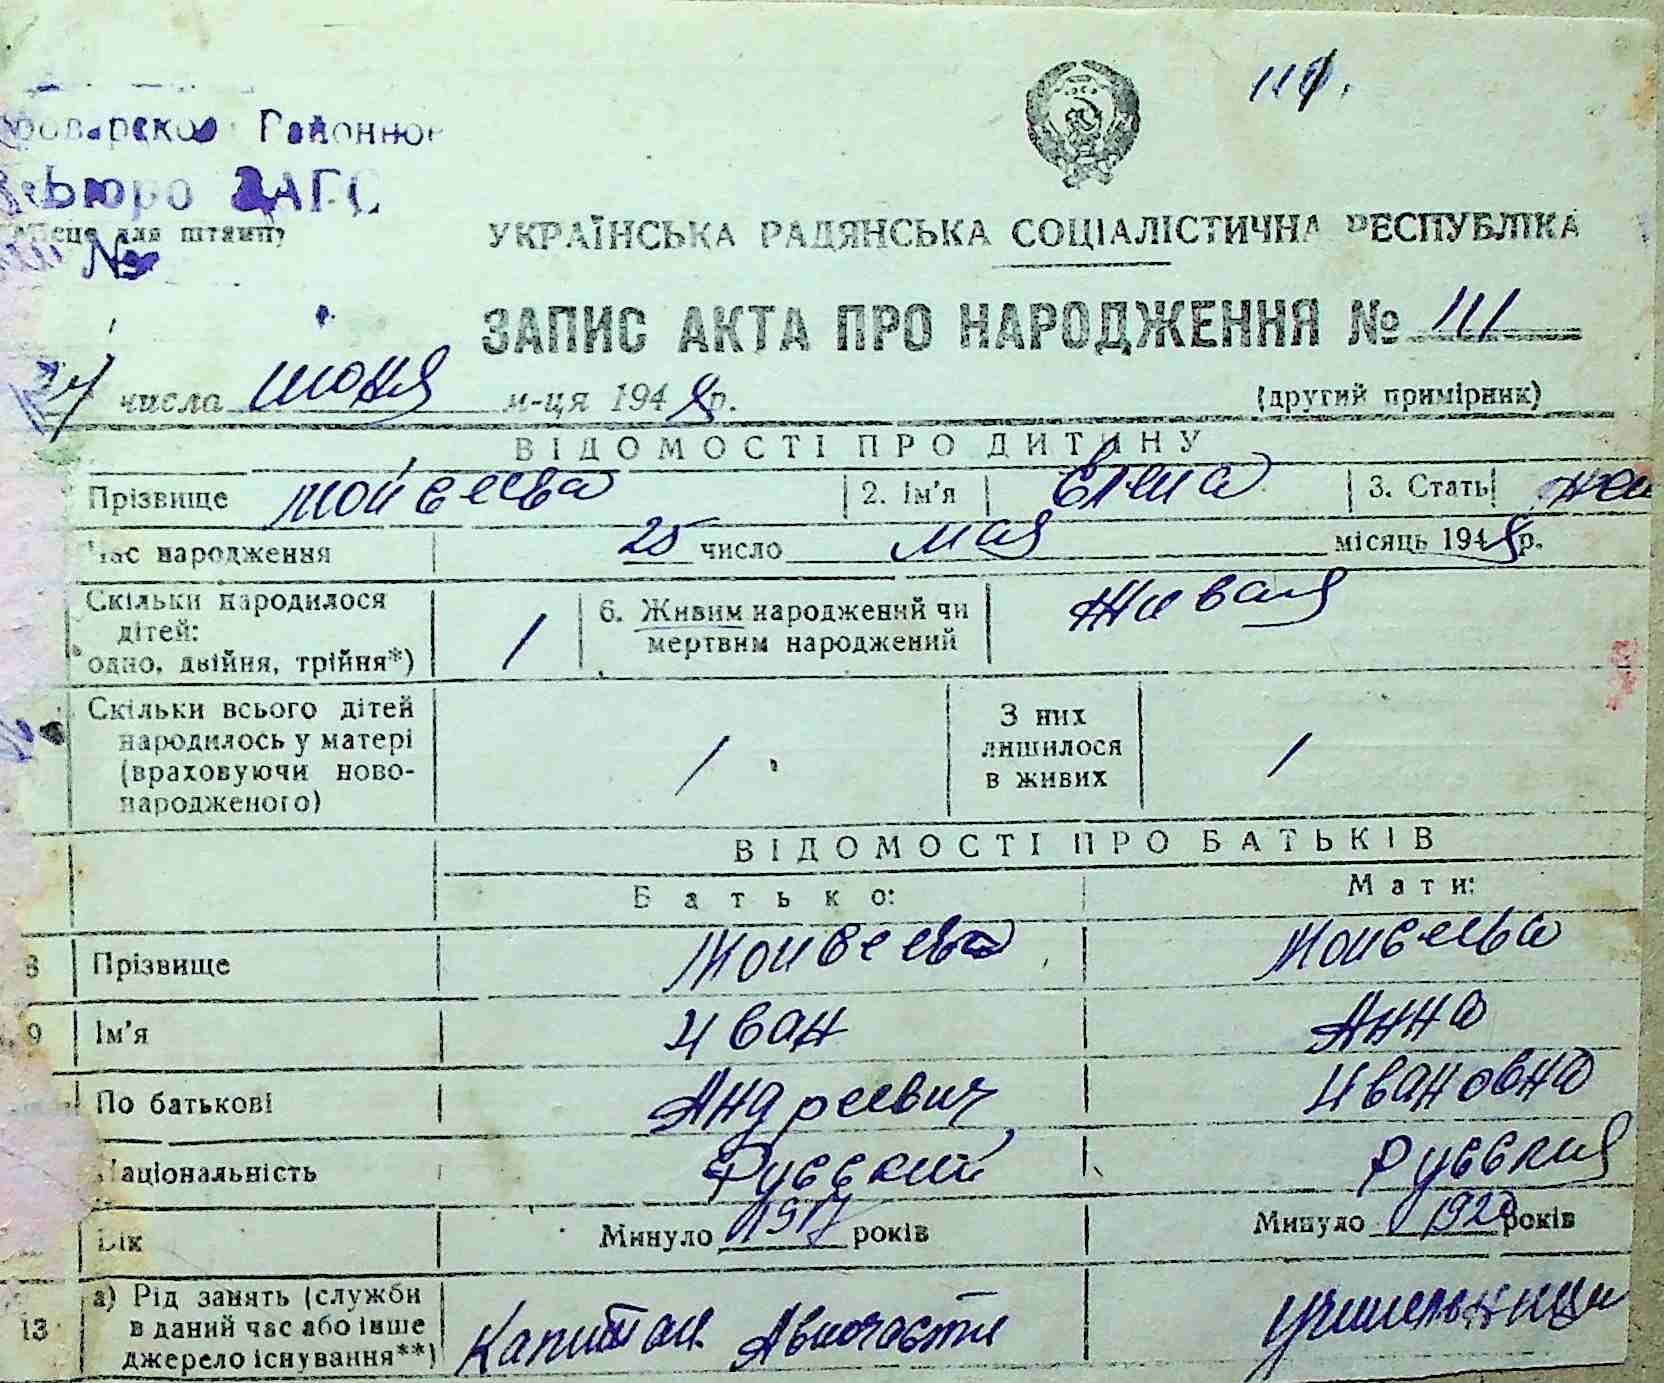 111.
Районное
Бюро ЗАГС
для штампу
№
УКРАЇНСЬКА РАДЯНСЬКА СОЦІАЛІСТИЧНА РЕСПУБЛІКА
ЗАПИС АКТА ПРО НАРОДЖЕННЯ № 111
числа июня м-ця 1948 р.
(другий примірник)
ВІДОМОСТІ ПРО ДИТИНУ
Прізвище Мойсеева 2. Ім'я Елена 3. Стать жен
Час народження 25 число мая місяць 1948 р.
Скільки народилося
дітей:
одно, двійня, трійня*) 1 6. Живим народжений чи
мертвим народжений Живая
Скільки всього дітей
народилось у матері
(враховуючи ново-
народженого) 1 З них
лишилося
в живих 1
ВІДОМОСТІ ПРО БАТЬКІВ
Батько: Мати:
8 Прізвище Моисеева Моисеева
9 Ім'я Иван Анна
По батькові Андреевич Ивановна
Національність Русский Русская
Вік Минуло 1917 років Минуло 1920 років
13 а) Рід занять (служби
в даний час або інше
джерело існування**) Капитан Авиочасти учительница